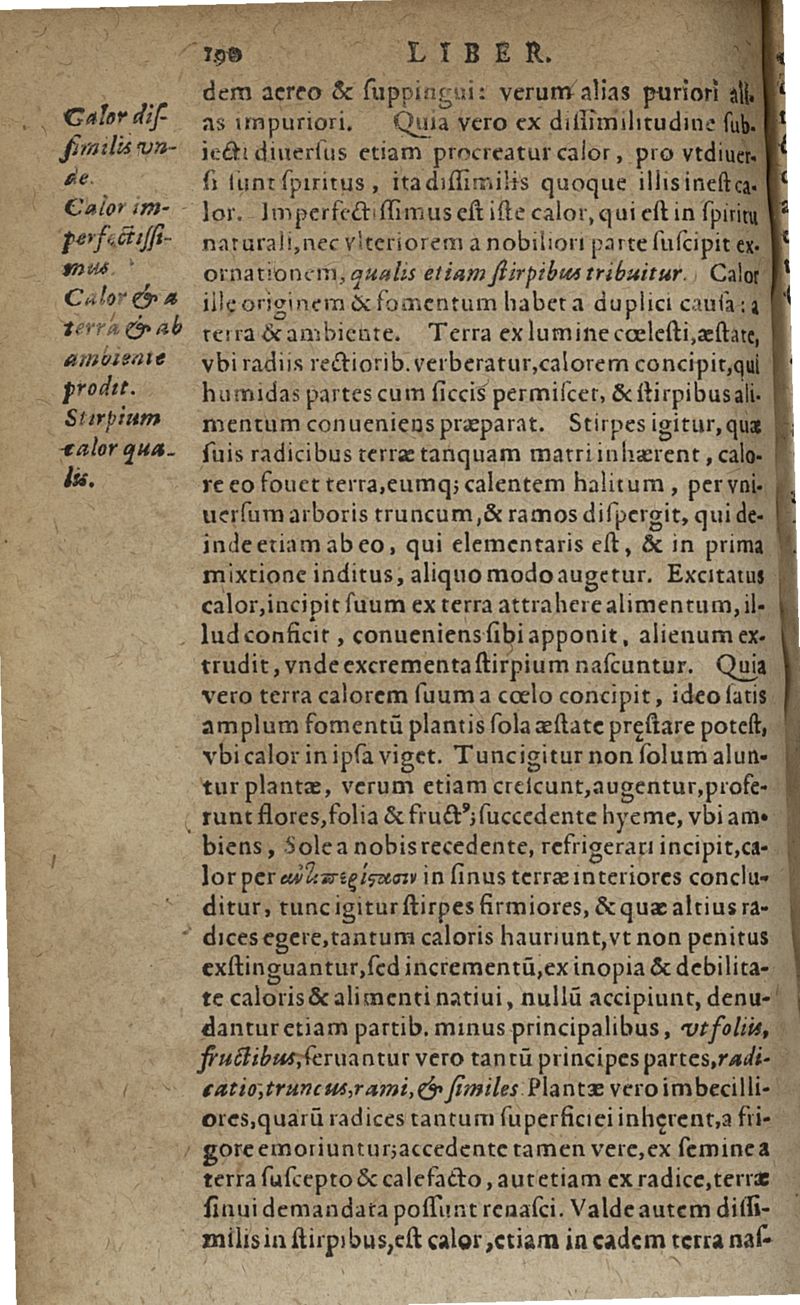 190 LIBER.
dem aereo & ſuppingui: verum alias puriori ali.
as impuriori. Quia vero ex diſſimilitudine ſub-
iecti diuerſus etiam procreatur calor, pro vt diuer-
ſi ſunt ſpiritus, ita diſſimilis quoque illis ineſt ca-
lor. Imperfectiſſimus eſt iſte calor, qui eſt in ſpiritu
naturali, nec vlteriorem a nobiliori parte ſuſcipit ex-
ornationem, qualis etiam ſtirpibus tribuitur. Calor
ille originem & fomentum habet a duplici cauſa: a
terra & ambiente. Terra ex lumine cœleſti, æſtate,
vbi radiis rectiorib. verberatur, calorem concipit, qui
humidas partes cum ſiccis permiſcet, & ſtirpibus ali-
mentum conueniens præparat. Stirpes igitur, quæ
ſuis radicibus terræ tanquam matri inhærent, calo-
re eo fouet terra, eumq; calentem halitum, per vni-
uerſum arboris truncum, & ramos diſpergit, qui de-
inde etiam ab eo, qui elementaris eſt, & in prima
mixtione inditus, aliquo modo augetur. Excitatus
calor, incipit ſuum ex terra attrahere alimentum, il-
lud conficit, conueniens ſibi apponit, alienum ex-
trudit, vnde excrementa ſtirpium naſcuntur. Quia
vero terra calorem ſuum a cœlo concipit, ideo ſatis
amplum fomentū plantis ſola æſtate pręſtare poteſt,
vbi calor in ipſa viget. Tunc igitur non ſolum alun-
tur plantæ, verum etiam creſcunt, augentur, profe-
runt flores, folia & fructꝰ; ſuccedente hyeme, vbi am-
biens, Sole a nobis recedente, refrigerari incipit, ca-
lor per ἀντιπερίστασιν in ſinus terræ interiores conclu-
ditur, tunc igitur ſtirpes firmiores, & quæ altius ra-
dices egere, tantum caloris hauriunt, vt non penitus
exſtinguantur, ſed incrementū, ex inopia & debilita-
te caloris & alimenti natiui, nullū accipiunt, denu-
dantur etiam partib. minus principalibus, vt foliis,
fructibus, ſeruantur vero tantū principes partes, radi-
catio, truncus, rami, & ſimiles. Plantæ vero imbecilli-
ores, quarū radices tantum ſuperficiei inhęrent, a fri-
gore emoriuntur; accedente tamen vere, ex ſemine a
terra ſuſcepto & calefacto, aut etiam ex radice, terræ
ſinui demandata poſſunt renaſci. Valde autem diſſi-
milis in ſtirpibus, eſt calor, etiam in eadem terra naſ-
Calor diſ-
ſimilis vn-
de.
Calor im-
perfectiſſi-
mus.
Calor & a
terra & ab
ambiente
prodit.
Stirpium
calor qua-
lis.